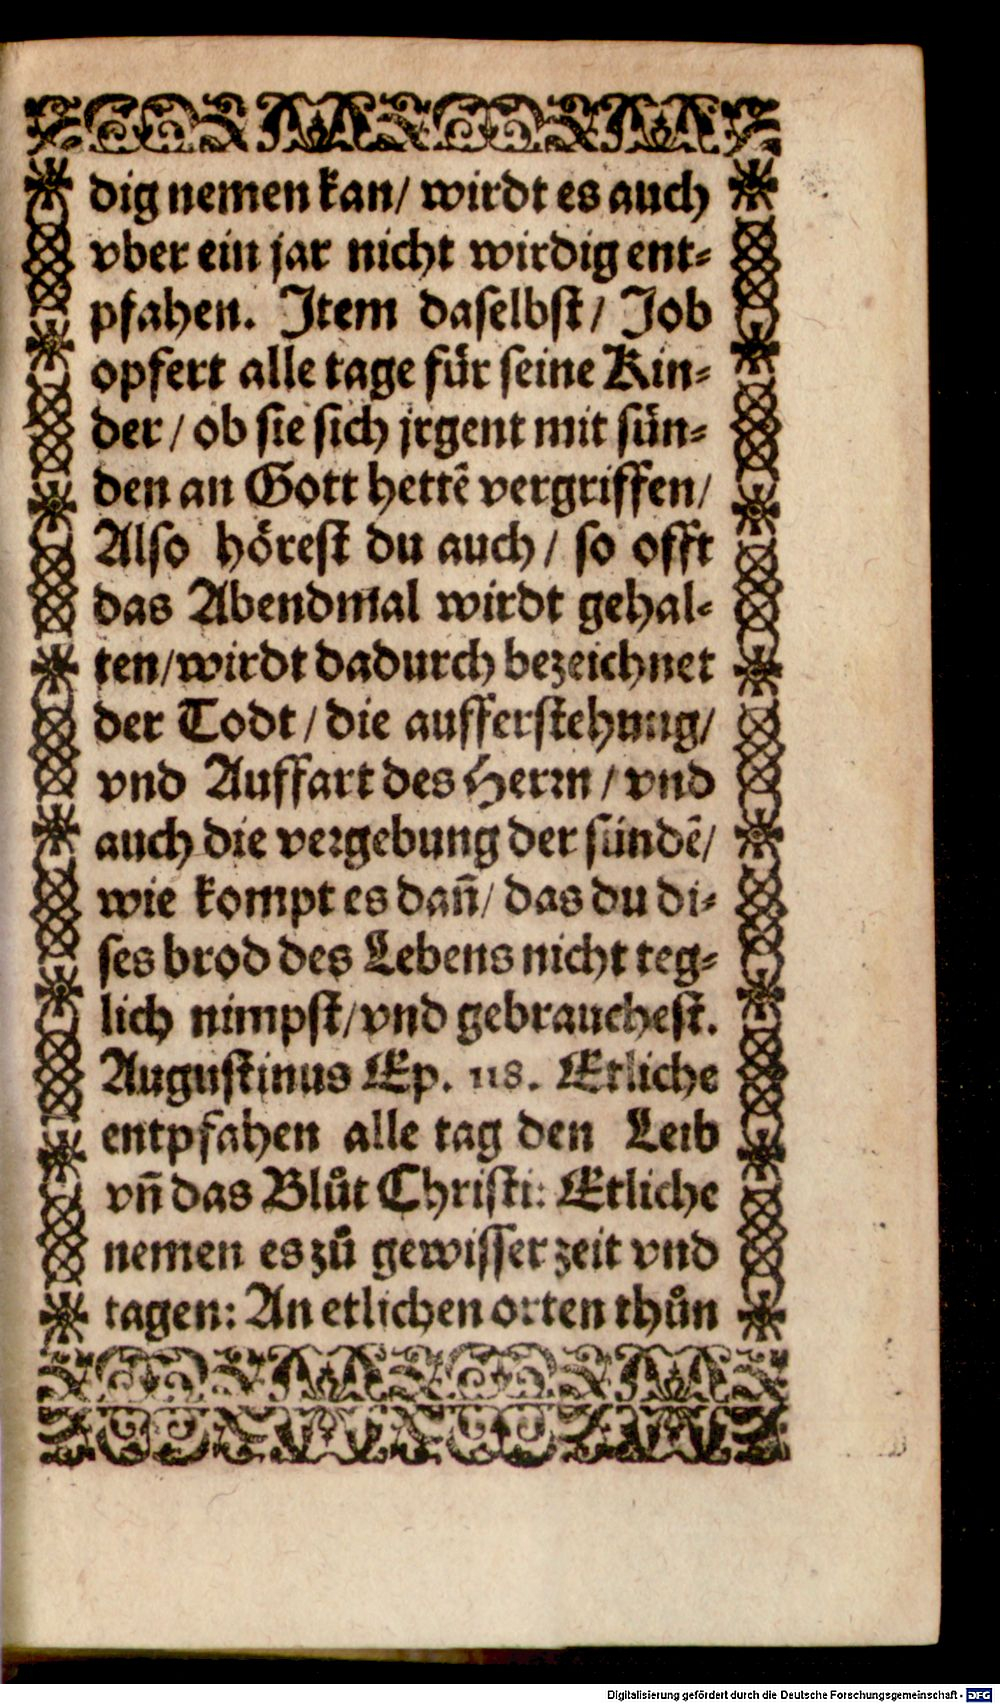 dig nemen kan/ wirdt es auch
vber ein jar nicht wirdig ent⸗
pfahen. Item daselbst/ Job
opfert alle tage für seine Kin⸗
der/ ob sie sich jrgent mit sün⸗
den an Gott hettẽ vergriffen/
Also hörest du auch/ so offt
das Abendmal wirdt gehal⸗
ten/wirdt dadurch bezeichnet
der Todt/ die aufferstehung/
vnd Auffart des Herrn/ vnd
auch die vergebung der sündẽ/
wie kompt es dañ/ das du di⸗
ses brod des Lebens nicht teg⸗
lich nimpst/vnd gebrauchest.
Augustinus Ep. 118. Etliche
entpfahen alle tag den Leib
vñ das Blůt Christi: Etliche
nemen es zů gewisser zeit vnd
tagen: An etlichen orten thůn
Digitalisierung gefördert durch die Deutsche Forschungsgemeinschaft - DFG